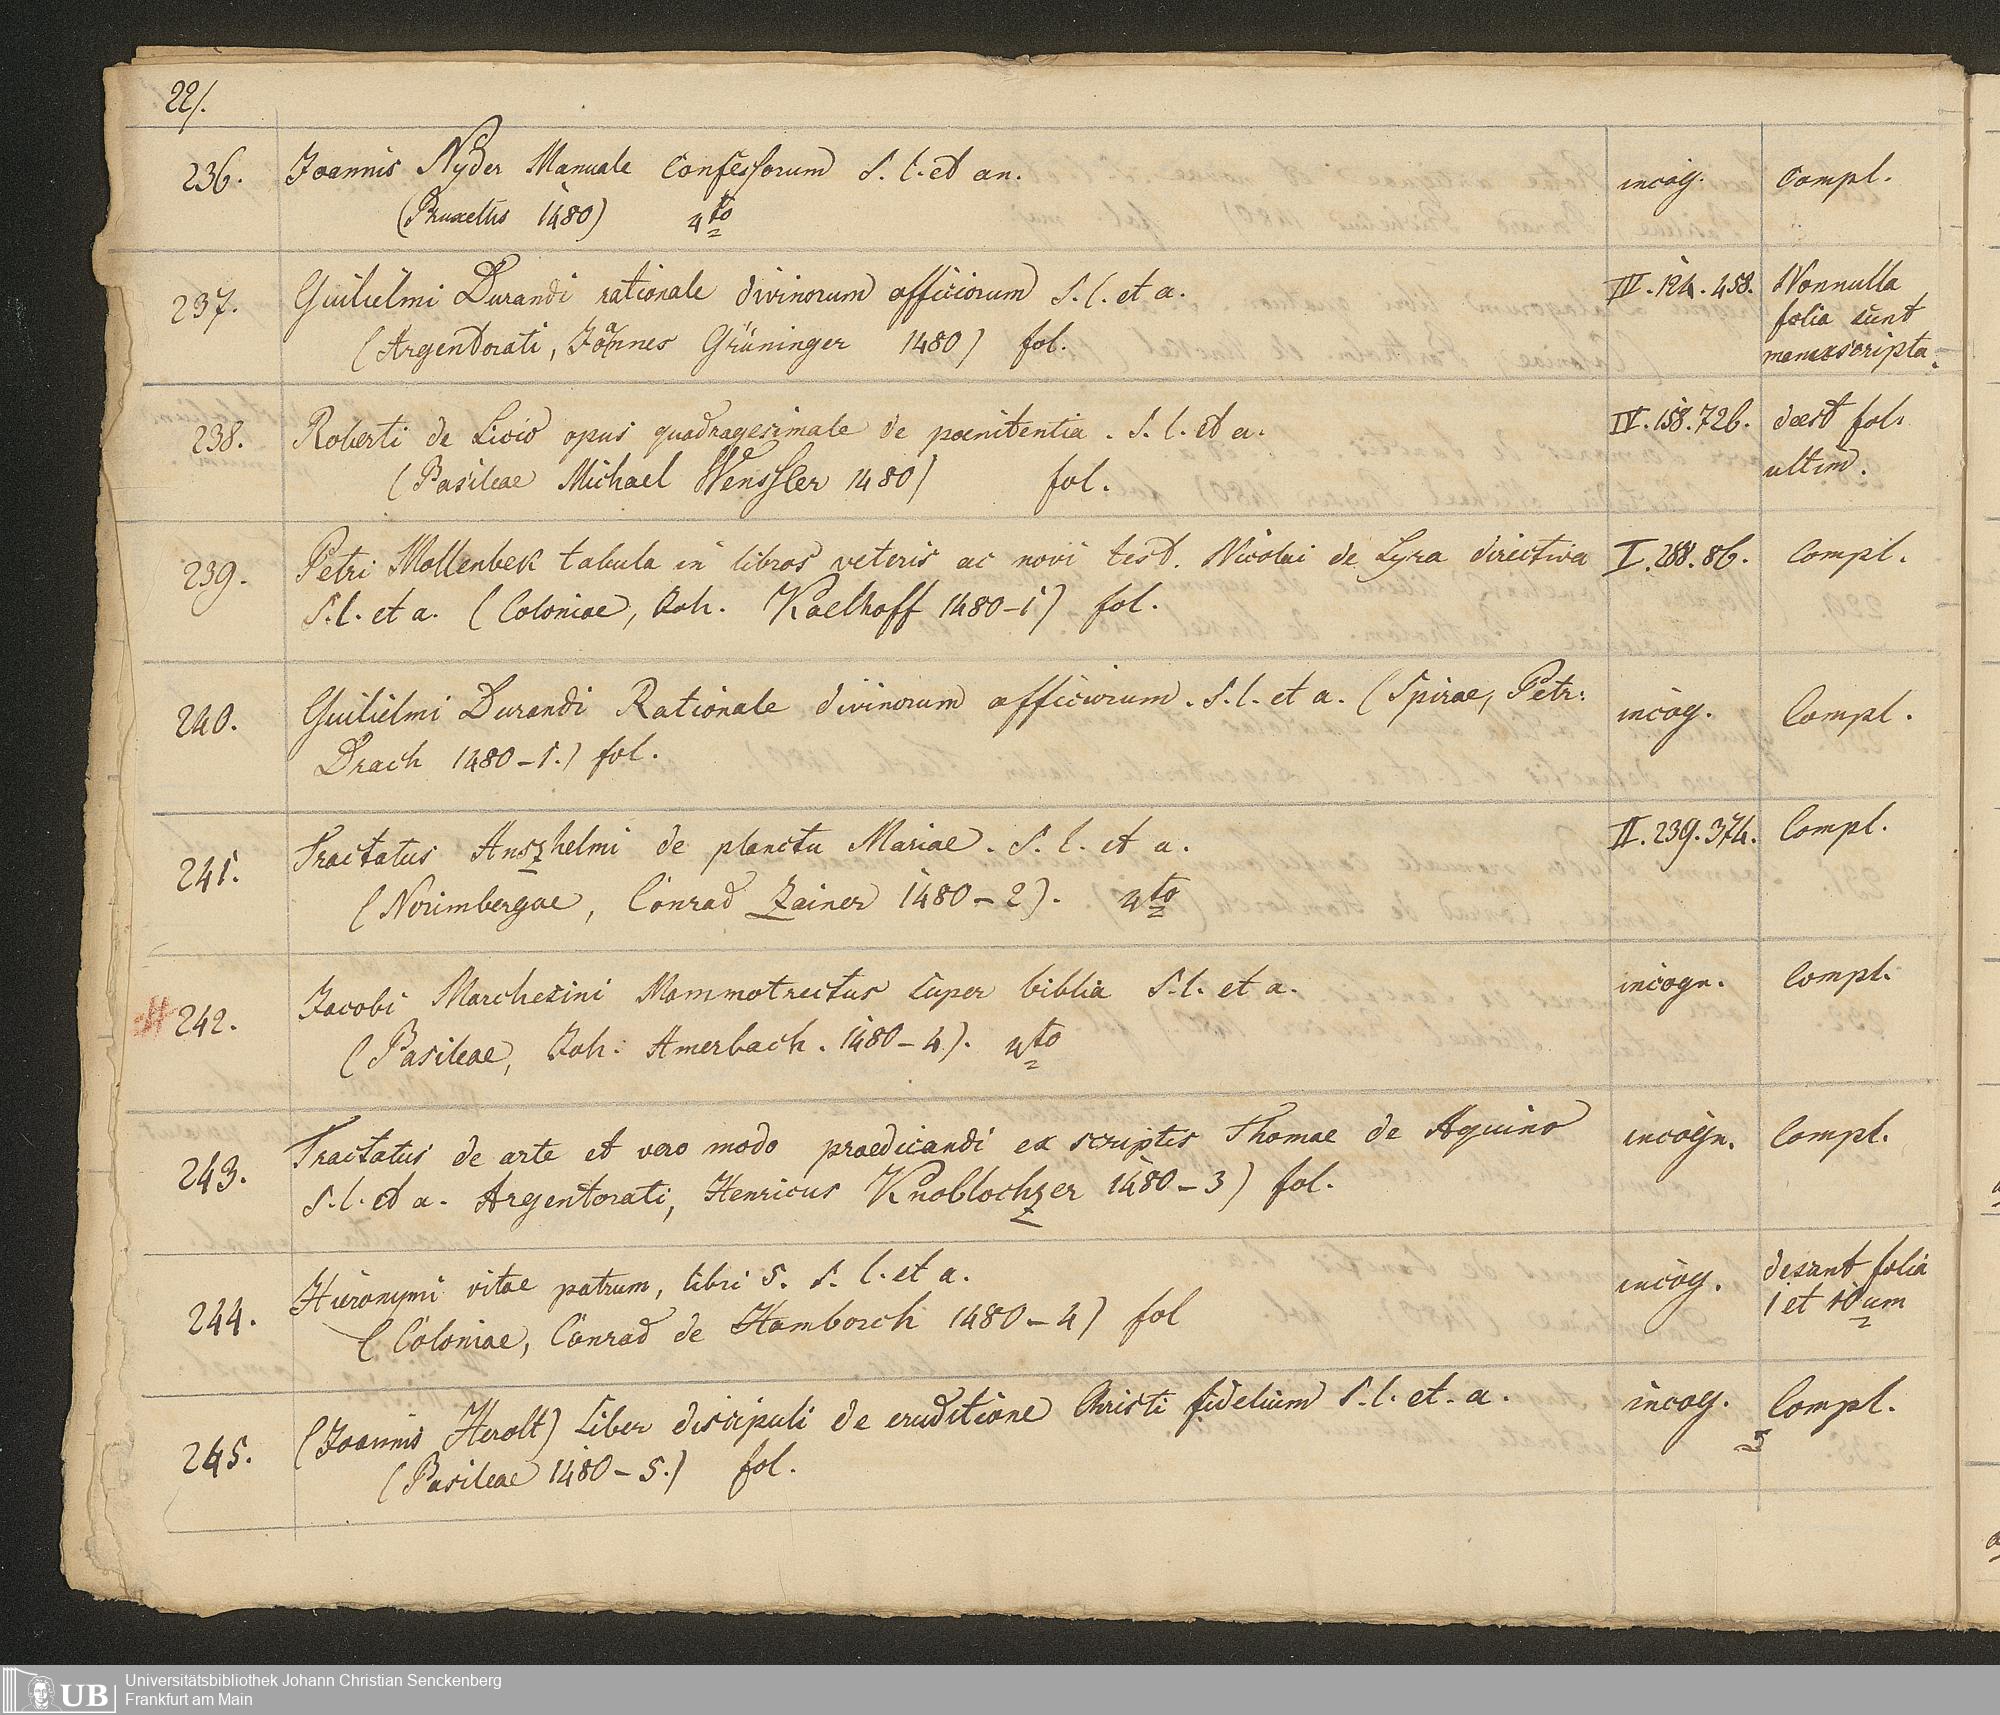 22/.
236. Joannis Nyder Manuale Confessorum S. l. et an. incog. Compl.
(Bruxellis 1480) 4to
237. Guilielmi Durandi rationale divinorum officiorum S. l. et a. IV. 124. 458. Nonnulla
folia sunt
(Argentorati, Johannes Grüninger 1480) fol. manuscripta.
238. Roberti de Licio opus quadragesimale de poenitentia. S. l. et a. IV. 158. 726. deest fol.
(Basileae Michael Wenssler 1480) fol. ultim.
239. Petri Mollenbek tabula in libros veteris ac novi test. Nicolai de Lyra directiva I. 288. 86. Compl.
S. l. et a. (Coloniae, Joh. Koelhoff 1480-1) fol.
240. Guilielmi Durandi Rationale divinorum officiorum. S. l. et a. (Spirae, Petr: incog. Compl.
Drach 1480-1.) fol.
241. Tractatus Anszhelmi de planctu Mariae. S. l. et a. II. 239. 374. Compl.
(Norimbergae, Conrad Zainer 1480-2). 4to
242. Jacobi Marchesini Mammotrectus super biblia S. l. et a. incogn. Compl.
(Basileae, Joh: Amerbach. 1480-4). 4to
243. Tractatus de arte et vero modo praedicandi ex scriptis Thomae de Aquino incogn. Compl.
S. l. et a. Argentorati, Henricus Knoblochzer 1480-3) fol.
244. Hieronymi vitae patrum, libri 5. S. l. et a. incog. desunt folia
(Coloniae, Conrad de Homborch 1480-4) fol 1 et 10um
245. (Joannis Herolt) Liber discipuli de eruditione Christi fidelium S. l. et. a. incog. Compl.
(Basileae 1480-5.) fol.
UB Universitätsbibliothek Johann Christian Senckenberg
Frankfurt am Main